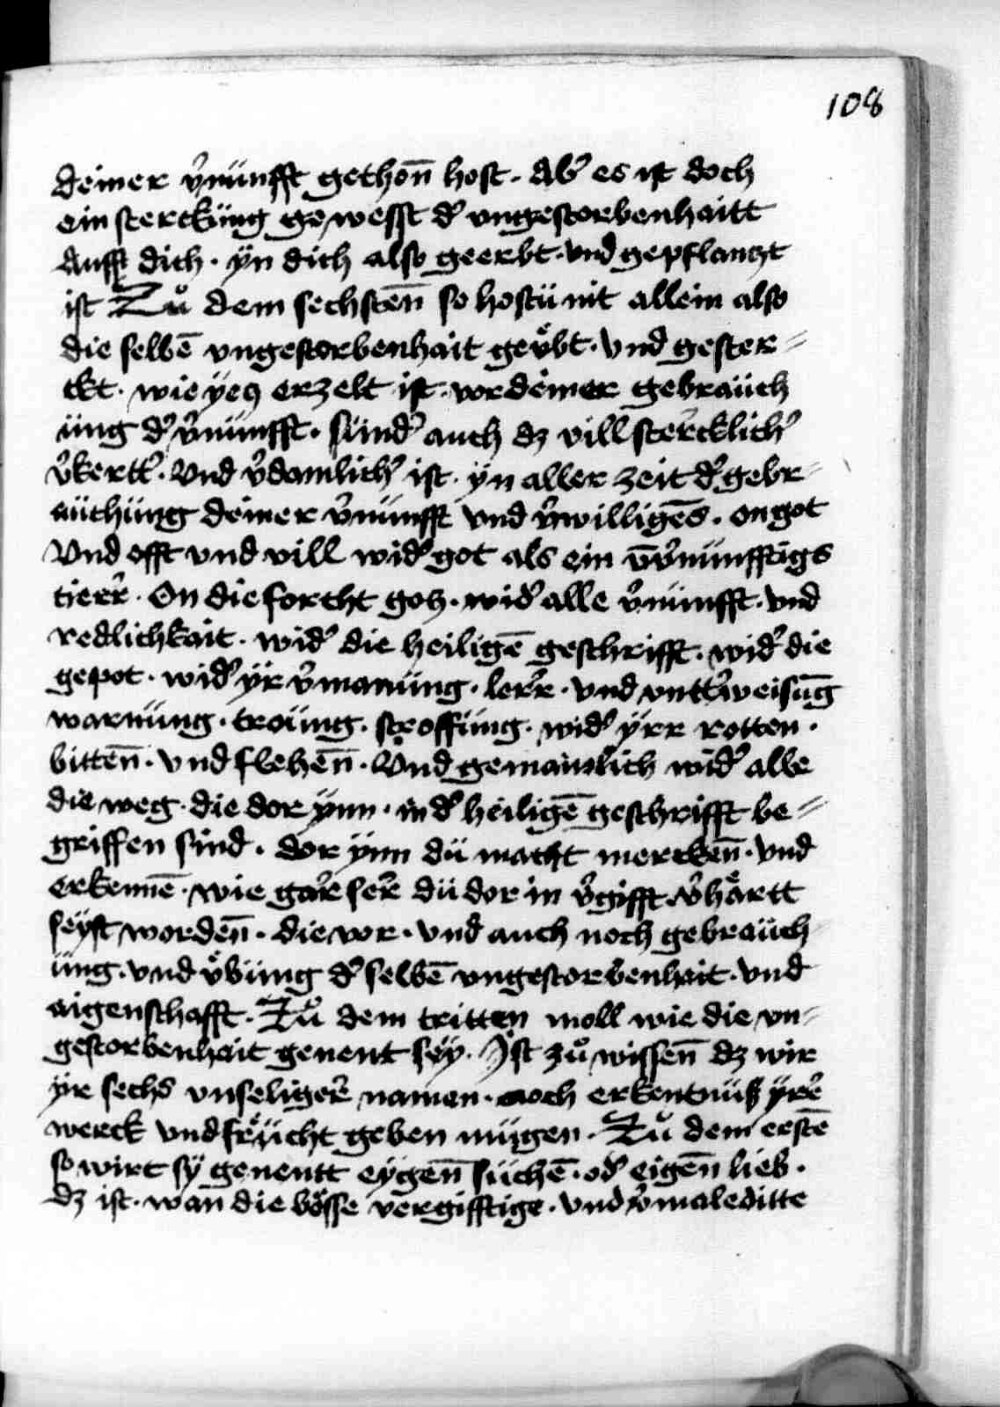 108
deiner v̉nünfft gethon̄ host · Ab̉ es ist doch
ein stercküng gewesst d̉ vngestorbenhaitt
Aufft dich · ÿn dich also geerbt · vnd gepflantzt
ist Zů dem sechsten̄ so hostü nit allein also
die selbē vngestorbenhait geu̇bt · vnd gester⸗
ckt · wie ÿetz erzelt ist · vor deiner gebraüch
üng d̉ v̉nünfft · sünd̉ auch dz vill stercklich̉
v̉kertt̉ · Vnd v̉damlich̉ ist · ÿn aller zeit d̉ gebr⸗
aüchüng deiner v̉nünfft vnd v̉willigēs · on got
Vnd offt vnd vill wid̉ got als ein v̄v̉nünfftigs
tierr̉ · On die forcht gotz · wid̉ alle v̉nünfft · vnd
redlichkait · wid̉ die heiligē geschrifft · wid̉ die
gepot · wid̉ ÿr v̉manüng · lerr̉ · vnd vntt̉weisūg
warnüng · troüng · stroffüng · wid̉ ÿrr rotten ·
bitten̄ · vnd flehen̄ · Vnd gemainlich wid̉ alle
die weg · die dor ÿnn · in d̉ heiligē geschrifft be⸗
griffen sind · dor ÿnn dü macht mercken̄ · vnd
erkennē · wie gar̉ ser̉ dü dor in v̉gifft v̉hårtt
seyst worden̄ · die vor · vnd auch noch gebraüch
üng · vnd v̊büng d̉ selbē vngestorbenhait · vnd
aigenschafft · Zů dem tritten moll wie die vn⸗
gestorbenhait genent seÿ · Ist zů wissen̄ dz wir
ÿr sechs vnseliger̉ namen · noch erkentnüß ÿrer̉
werck vnd frücht geben mügen · Zů dem erstē
so wirt sÿ genentt eÿgen̄ süchē · od̉ eigen̄ lieb ·
dz ist · wan die bösse vergifftige · vnd v̉maleditte